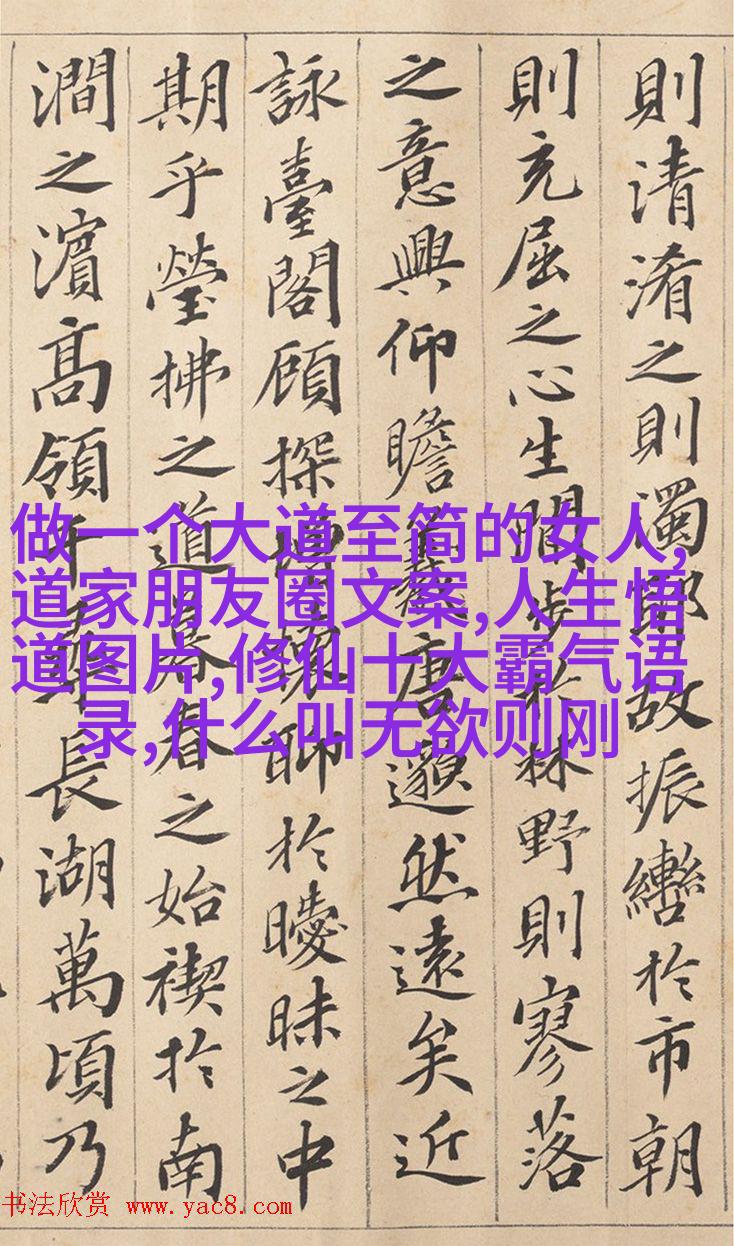 則清淆之則濁耶故振轡於市朝
則充屈之心生閒步於林野則寥落
之意興仰瞻羲唐邈然遠矣近
詠臺閣顧探增懷聊於曖昧之中
期乎瑩拂之道暮春之始禊於南
澗之濱高領千尋長湖萬頃乃
做一个大道至简的女人,
道家朋友圈文案,人生悟
道图片,修仙十大霸气语
录,什么叫无欲则刚
书法欣赏 www.yac8.com